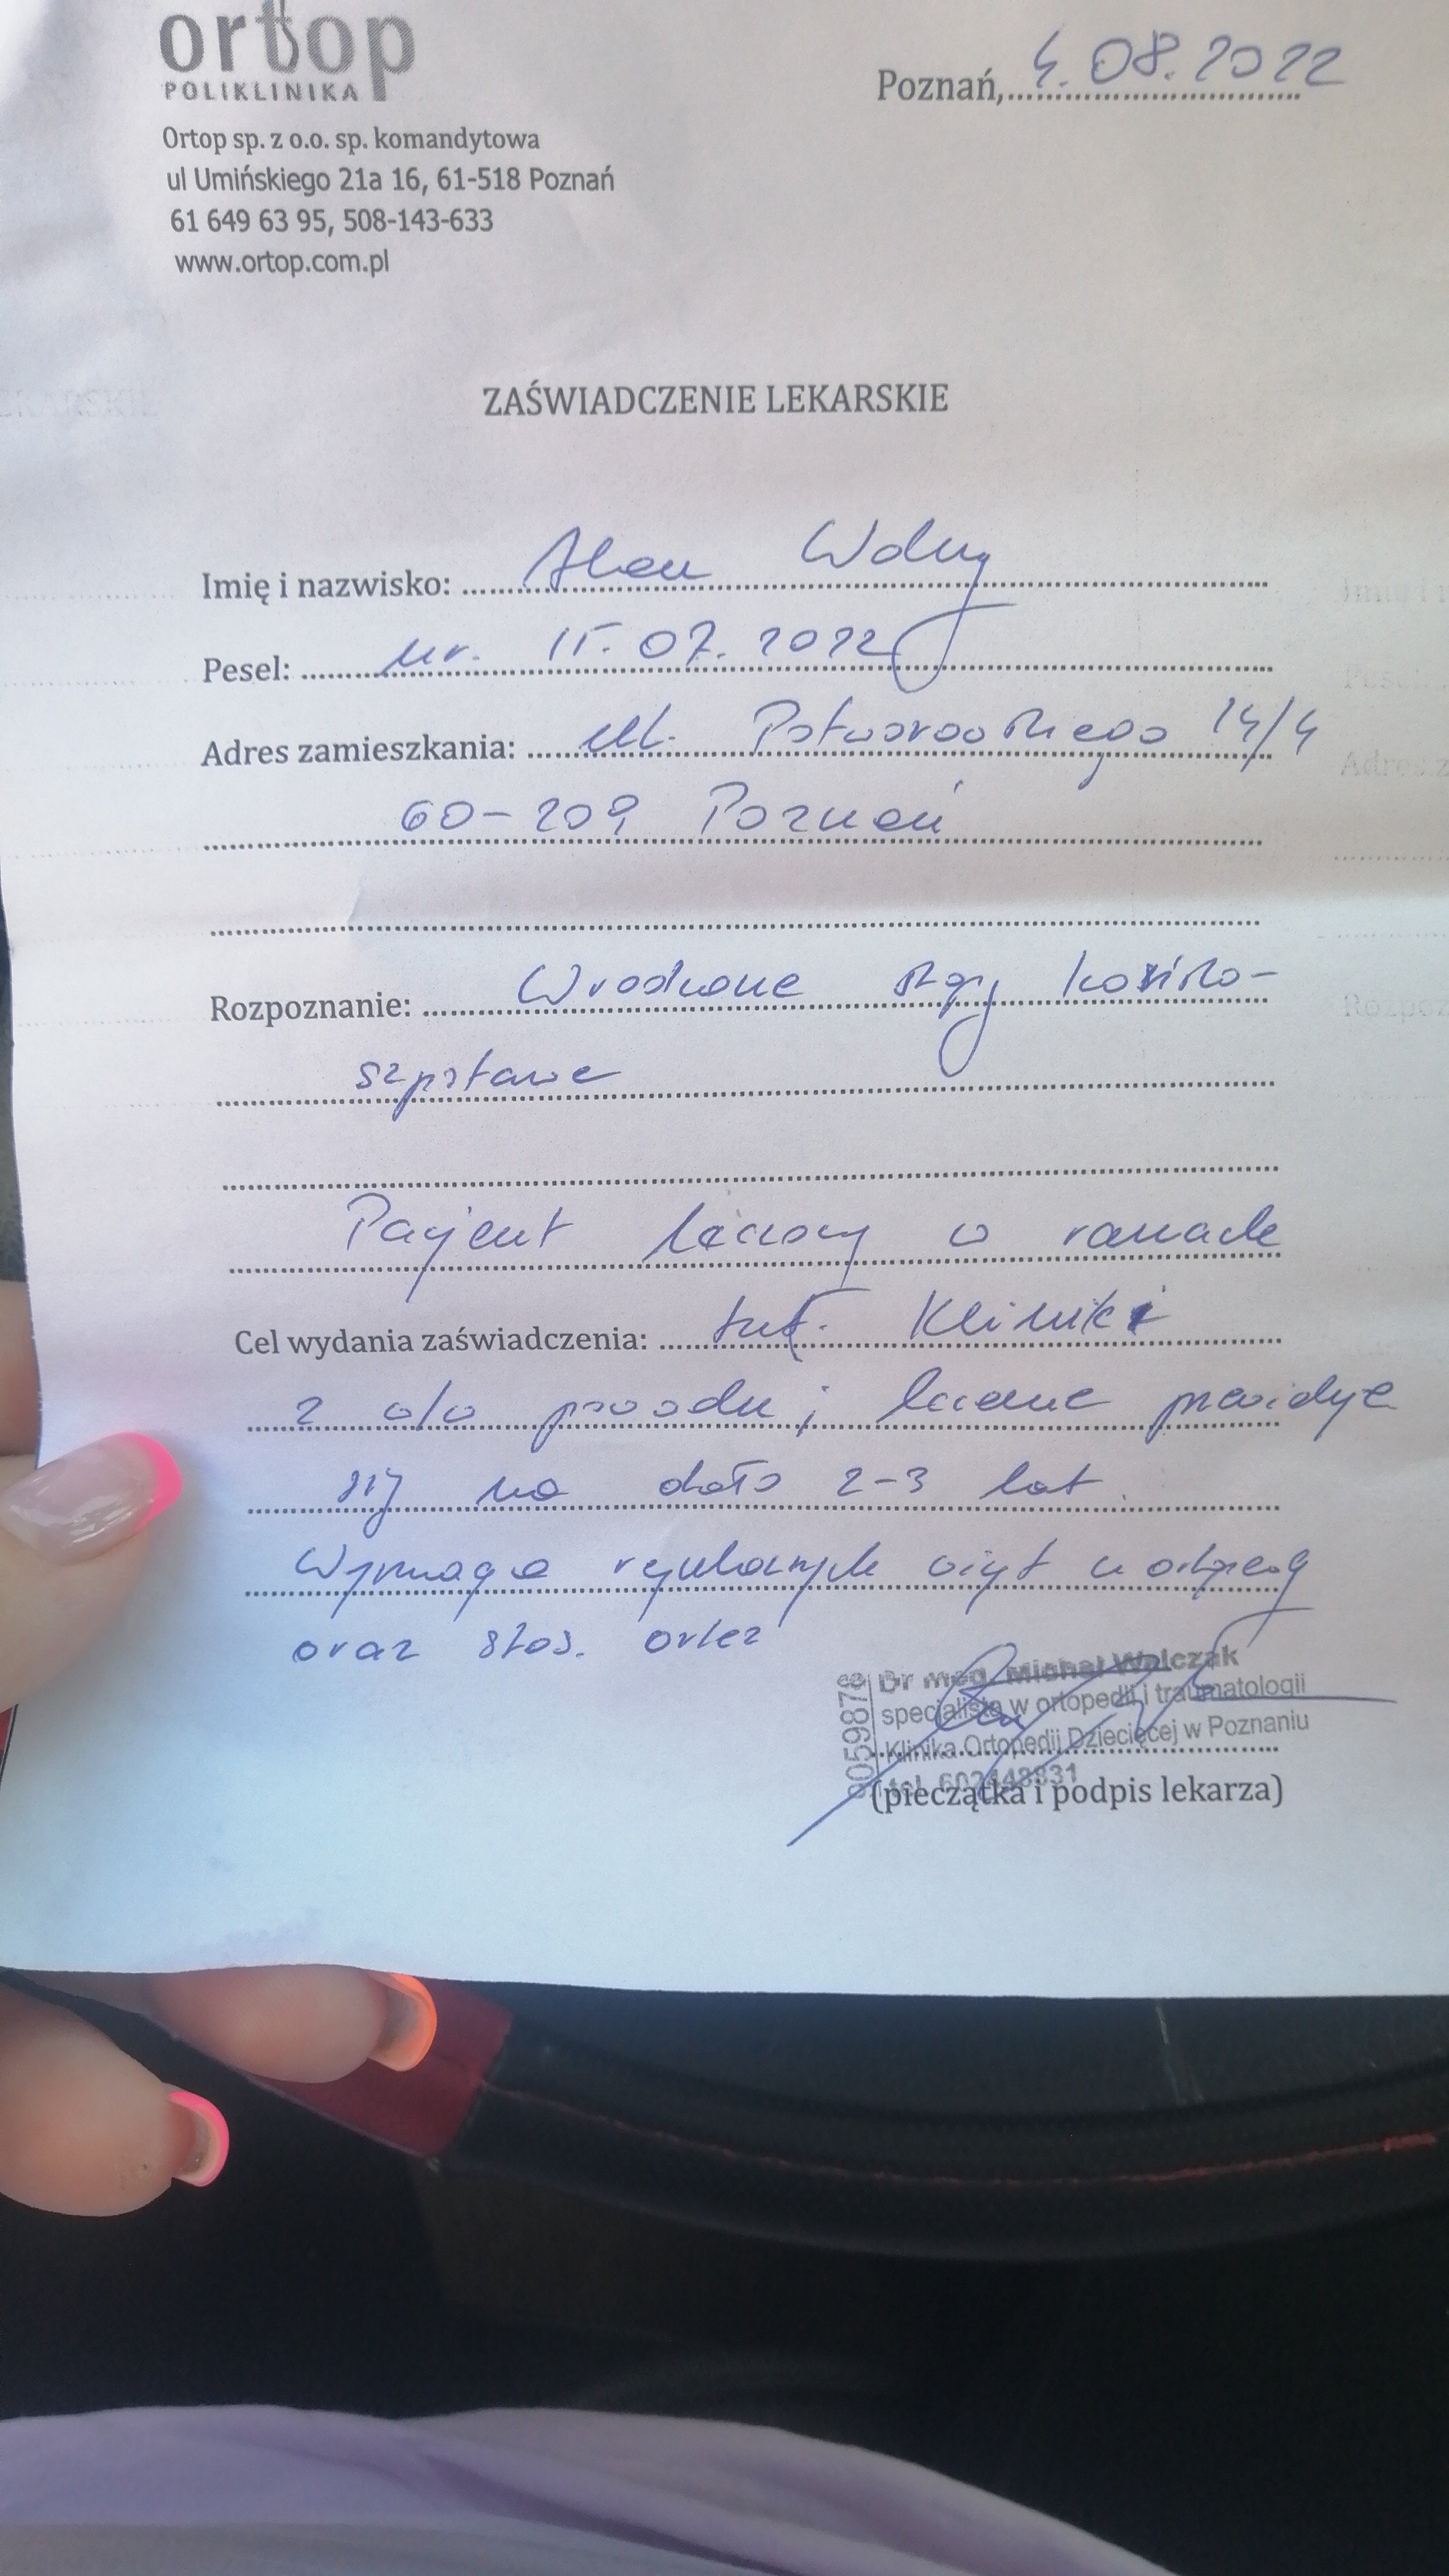 ortop
POLIKLINIKA
Ortop sp. z o.o. sp. komandytowa
ul Umińskiego 21a 16, 61-518 Poznań
61 649 63 95, 508-143-633
www.ortop.com.pl
Poznań, 4.08.2022
ZAŚWIADCZENIE LEKARSKIE
Imię i nazwisko: Alan Wolny
Pesel: ur. 15.07.2022
Adres zamieszkania: ul. Potworowskiego 14/4
60-209 Poznań
Rozpoznanie: Wrodzone stopy końsko-
szpotawe
Pacjent leczony w ramach
Cel wydania zaświadczenia: tut. Kliniki
z w/w powodu; leczenie przewiduje
się na około 2-3 lat.
Wymaga regularnych wizyt
oraz stos. ortez
Dr med. Michał Walczak
specjalista w ortopedii i traumatologii
Klinika Ortopedii Dziecięcej w Poznaniu
tel. 602448831
(pieczątka i podpis lekarza)